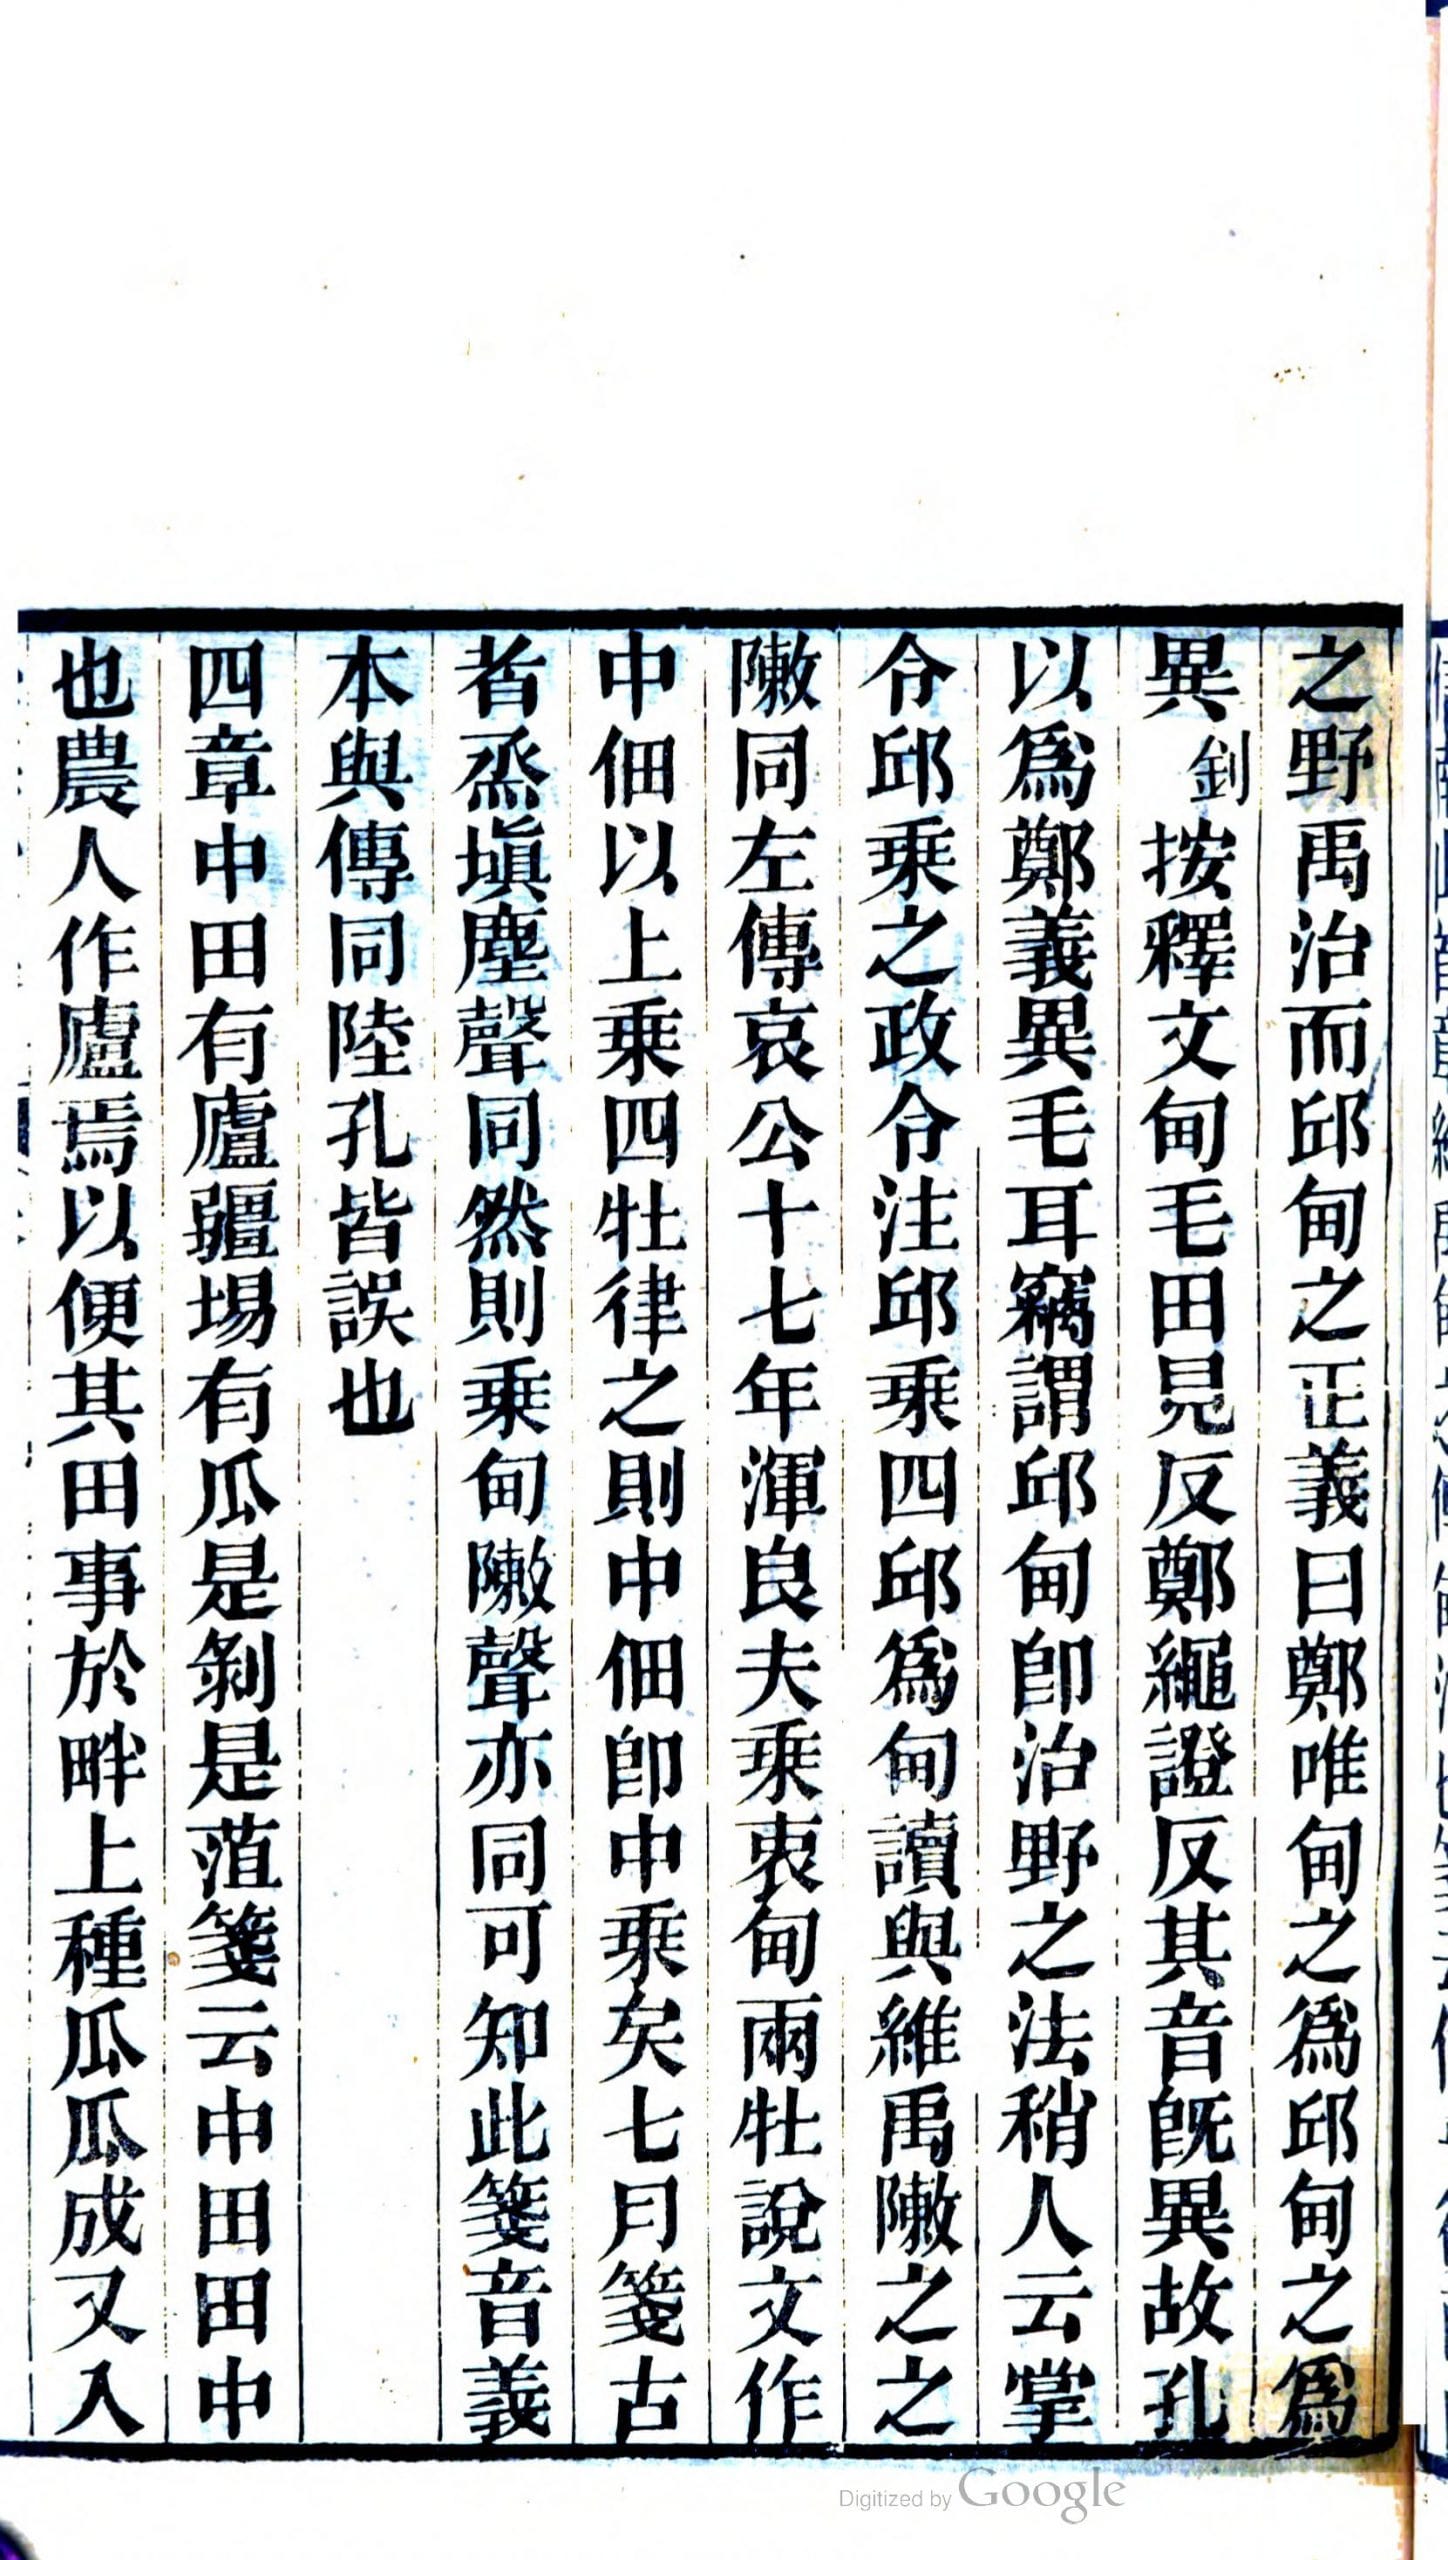 之野禹治而邱甸之正義曰鄭唯甸之爲邱甸之爲
異釗按釋文甸毛田見反鄭繩證反其音旣異故孔
以爲鄭義異毛耳竊謂邱甸卽治野之法稍人云掌
令邱乗之政令注邱乗四邱爲甸讀與維禹敶之之
敶同左傳哀公十七年渾良夫乗衷甸兩牡說文作
中佃以上乗四牡律之則中佃卽中乗矣七月箋古
者烝塡塵聲同然則乗甸敶聲亦同可知此箋音義
本與傳同陸孔皆誤也
四章中田有廬疆埸有瓜是剝是菹箋云中田田中
也農人作廬焉以便其田事於畔上種瓜瓜成又入
Digitized by Google